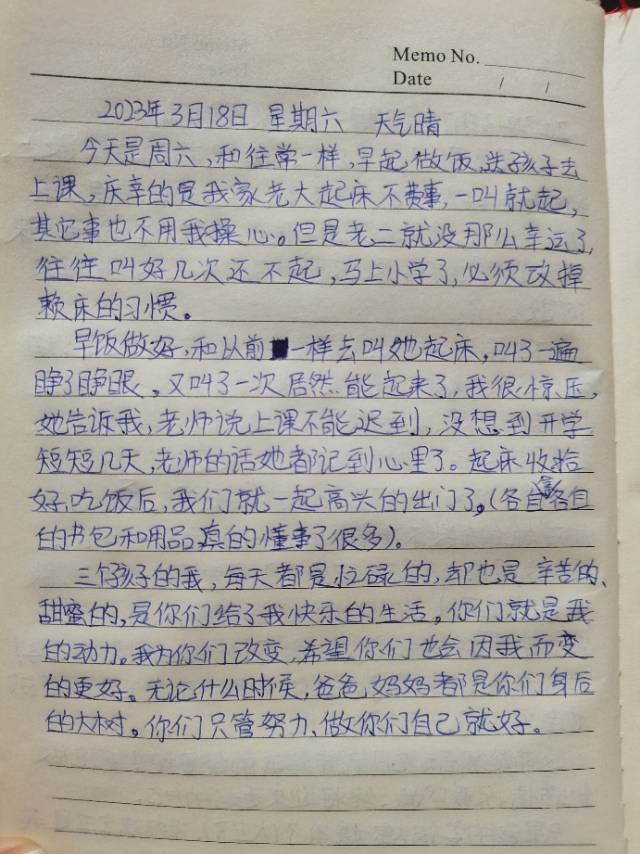 Memo No.
Date / /
2023年3月18日 星期六 天气晴
今天是周六,和往常一样,早起做饭,送孩子去
上课,庆幸的是我家老大起床不费事,一叫就起,
其它事也不用我操心。但是老二就没那么幸运了,
往往叫好几次还不起,马上小学了,必须改掉
赖床的习惯。
早饭做好,和以前一样去叫她起床,叫了一遍
睁了睁眼,又叫了一次居然能起来了,我很惊压,
她告诉我,老师说上课不能迟到,没想到开学
短短几天,老师的话她都记到心里了。起床收拾
好,吃饭后,我们就一起高兴的出门了。(各自背各自
的书包和用品,真的懂事了很多)。
三个孩子的我,每天都是忙碌的,却也是辛苦的、
甜蜜的,是你们给了我快乐的生活。你们就是我
的动力。我为你们改变,希望你们也会因我而变
的更好。无论什么时候,爸爸,妈妈都是你们身后
的大树。你们只管努力、做你们自己就好。